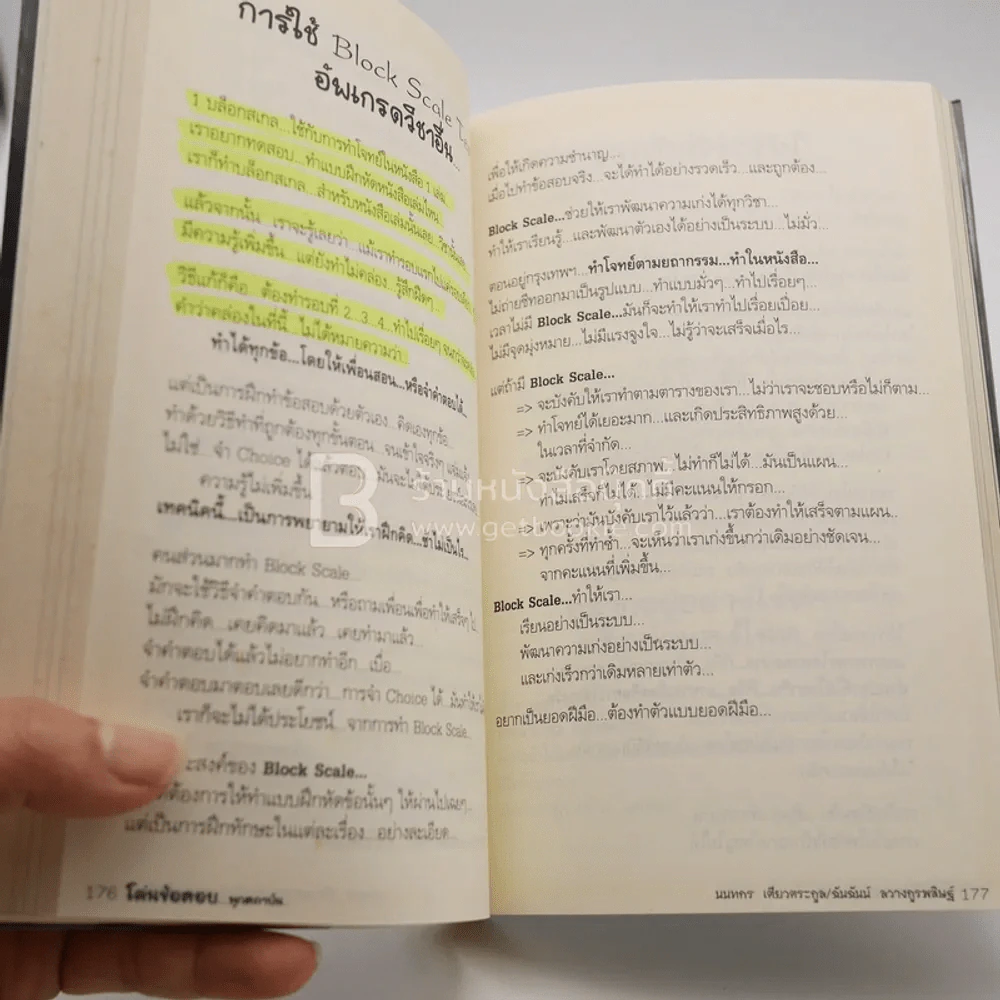 การใช้ Block Scale
อัพเกรดวิชาอื่น...
1 บล็อกสเกล...ใช้กับการทำโจทย์ในหนังสือ 1 เล่ม
เราอยากทดสอบ...ทำแบบฝึกหัดหนังสือเล่มไหน
เราก็ทำบล็อกสเกล...สำหรับหนังสือเล่มนั้นเลย
แล้วจากนั้น เราจะรู้เลยว่า...แม้เราทำรอบแรกไป
มีความรู้เพิ่มขึ้น...แต่ยังทำไม่คล่อง รู้สึกฝืดๆ...
วิธีแก้ก็คือ...ต้องทำรอบที่ 2...3...4...ทำไปเรื่อยๆ
คำว่าคล่องในที่นี้...ไม่ได้หมายความว่า...
ทำได้ทุกข้อ...โดยให้เพื่อนสอน...หรือจำคำตอบได้...
แต่เป็นการฝึกทำข้อสอบด้วยตัวเอง...คิดเองทุกข้อ...
ทำด้วยวิธีทำที่ถูกต้องทุกขั้นตอน...จนเข้าใจจริงๆ
ไม่ใช่...จำ Choice ได้แล้วตอบ
ความรู้ไม่เพิ่มขึ้น
เทคนิคนี้...เป็นการพยายามให้เราฝึกคิด...ช้าไม่เป็นไร...
คนส่วนมากทำ Block Scale...
มักจะใช้วิธีจำคำตอบกัน...หรือถามเพื่อนเพื่อทำให้เสร็จๆ ไป...
ไม่ฝึกคิด...เคยคิดมาแล้ว...เคยทำมาแล้ว...
จำคำตอบได้แล้วไม่อยากทำอีก...เบื่อ...
จำคำตอบมาตอบเลยดีกว่า...การจำ Choice ได้...
เราก็จะไม่ได้ประโยชน์...จากการทำ Block Scale...
ะสงค์ของ Block Scale...
ต้องการให้ทำแบบฝึกหัดข้อนั้นๆ ให้ผ่านไปเฉยๆ...
แต่เป็นการฝึกทักษะในแต่ละเรื่อง...อย่างละเอียด...
176 โค่นข้อสอบ
เพื่อให้เกิดความชำนาญ...
เมื่อไปทำข้อสอบจริง...จะได้ทำได้อย่างรวดเร็ว...และถูกต้อง...
Block Scale...ช่วยให้เราพัฒนาความเก่งได้ทุกวิชา...
ทำให้เราเรียนรู้...และพัฒนาตัวเองได้อย่างเป็นระบบ...ไม่มั่ว...
ตอนอยู่กรุงเทพฯ...ทำโจทย์ตามยถากรรม...ทำในหนังสือ...
ไม่ถ่ายชีทออกมาเป็นรูปแบบ...ทำแบบมั่วๆ...ทำไปเรื่อยๆ...
เวลาไม่มี Block Scale...มันก็จะทำให้เราทำไปเรื่อยเปื่อย...
ไม่มีจุดมุ่งหมาย...ไม่มีแรงจูงใจ...ไม่รู้ว่าจะเสร็จเมื่อไร...
แต่ถ้ามี Block Scale...
=> จะบังคับให้เราทำตามตารางของเรา...ไม่ว่าเราจะชอบหรือไม่ก็ตาม...
=> ทำโจทย์ได้เยอะมาก...และเกิดประสิทธิภาพสูงด้วย...
ในเวลาที่จำกัด...
=> จะบังคับเราโดยสภาพ...ไม่ทำก็ไม่ได้...มันเป็นแผน...
ทำไม่เสร็จก็ไม่ได้...ไม่มีคะแนนให้กรอก...
=> เพราะว่ามันบังคับเราไว้แล้วว่า...เราต้องทำให้เสร็จตามแผน...
=> ทุกครั้งที่ทำซ้ำ...จะเห็นว่าเราเก่งขึ้นกว่าเดิมอย่างชัดเจน...
จากคะแนนที่เพิ่มขึ้น...
Block Scale...ทำให้เรา...
เรียนอย่างเป็นระบบ...
พัฒนาความเก่งอย่างเป็นระบบ...
และเก่งเร็วกว่าเดิมหลายเท่าตัว...
อยากเป็นยอดฝีมือ...ต้องทำตัวแบบยอดฝีมือ...
นนทกร เตียวตระกูล/ฉันฉันน์ ลวางกูรพลิษฐ์ 177
www.getbookie.com